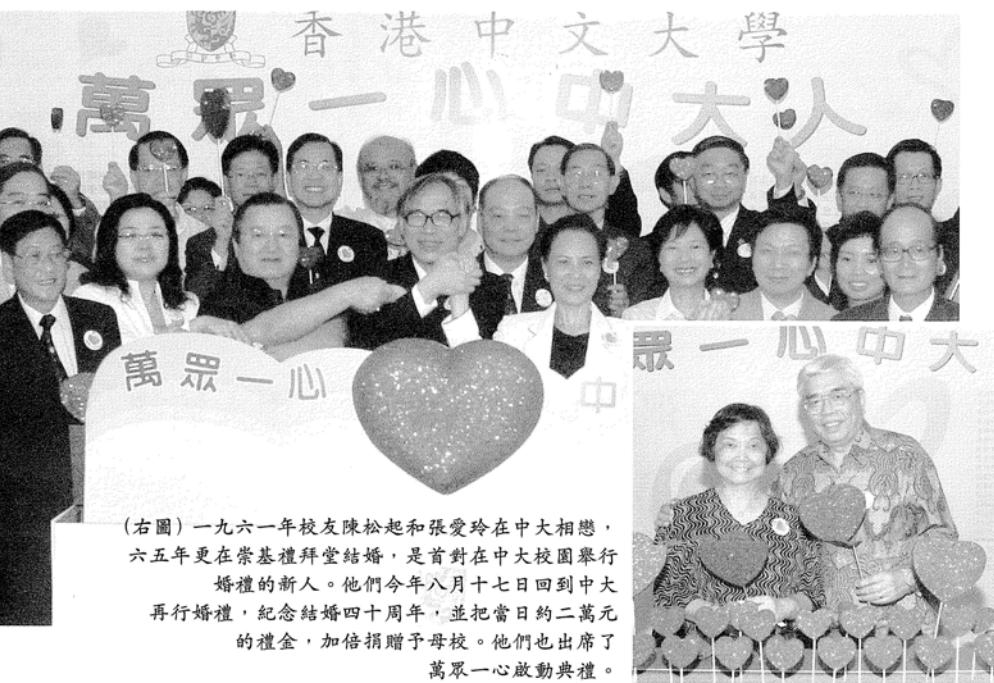 香港中文大學
萬眾一心中大人
萬眾一心
中
眾一心中大
(右圖)一九六一年校友陳松起和張愛玲在中大相戀，
六五年更在崇基禮拜堂結婚，是首對在中大校園舉行
婚禮的新人。他們今年八月十七日回到中大
再行婚禮，紀念結婚四十周年，並把當日約二萬元
的禮金，加倍捐贈予母校。他們也出席了
萬眾一心啟動典禮。